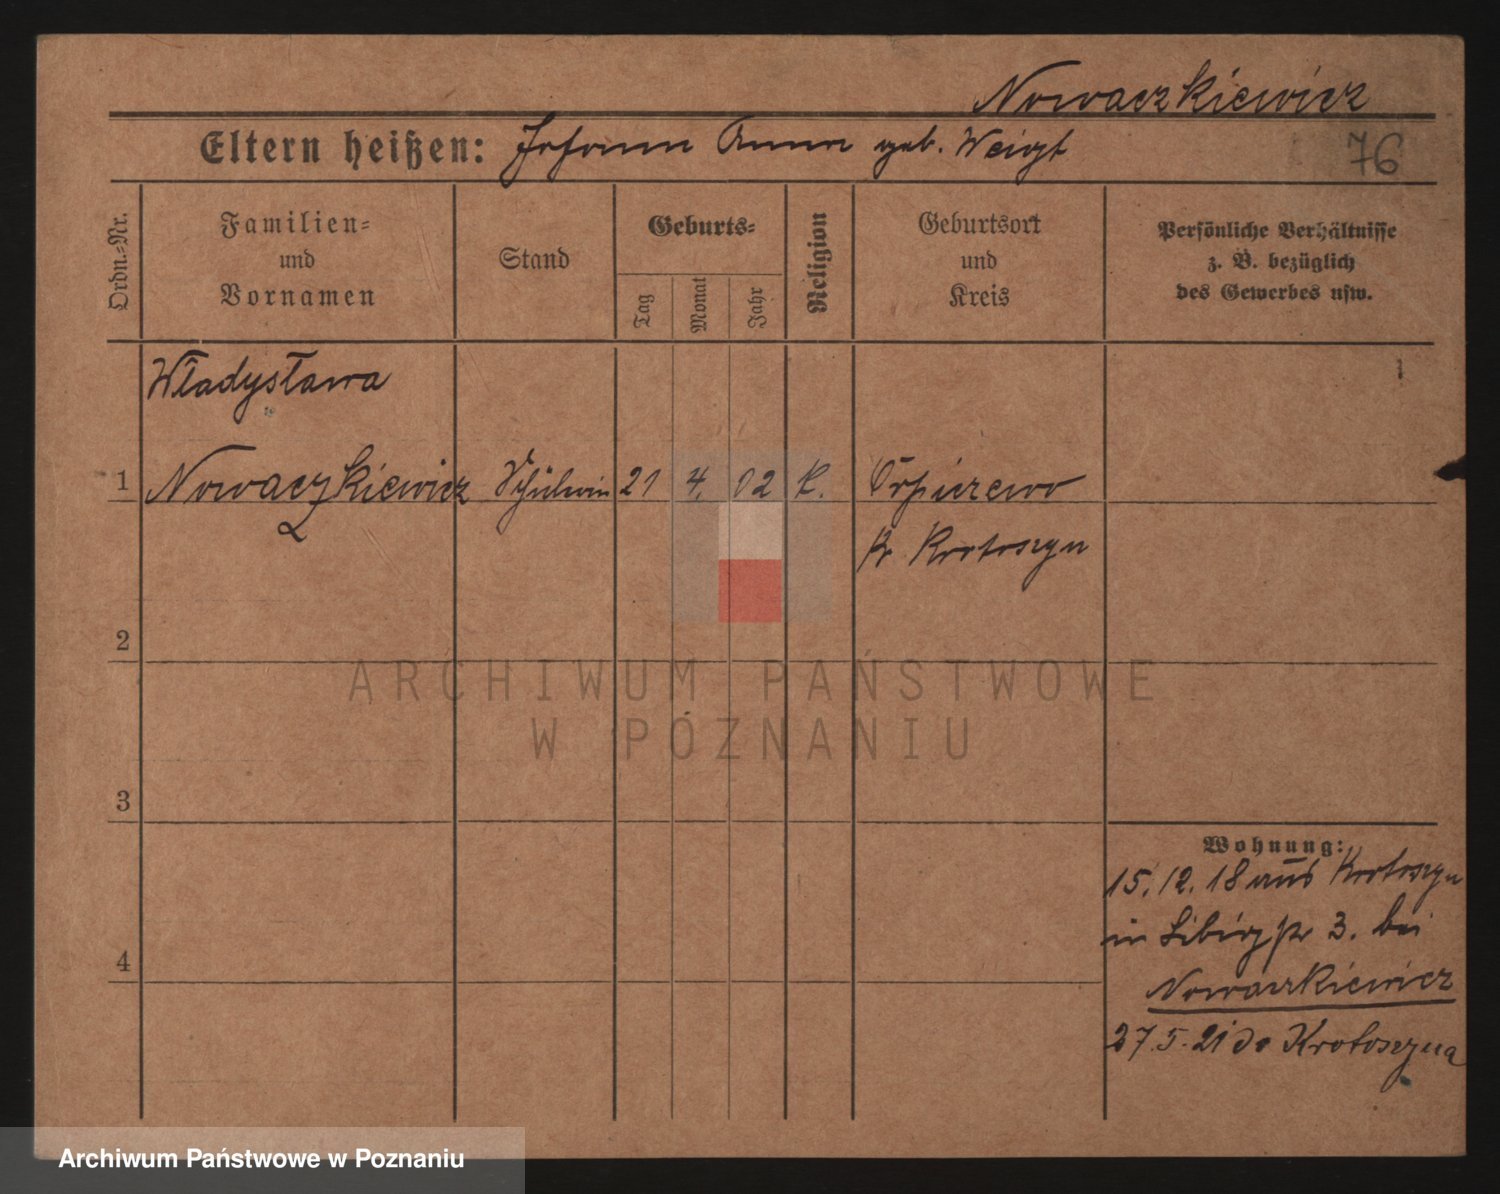 Nowaczkiewicz
Eltern heißen: Johann Anna geb. Weigt
76
Ordn.-Nr.
Familien-
und
Vornamen
Stand
Geburts-
Tag
Monat
Jahr
Religion
Geburtsort
und
Kreis
Persönliche Verhältnisse
z. B. bezüglich
des Gewerbes usw.
Władysława
1 Nowaczkiewicz Schülerin 21 4. 02 k. Orpiszewo
Kr. Krotoszyn
2
3
4
Wohnung:
15.12.18 aus Krotoszyn
in 3. bei
Nowaczkiewicz
27.5.21 do Krotoszyna
ARCHIWUM PAŃSTWOWE
W POZNANIU
Archiwum Państwowe w Poznaniu